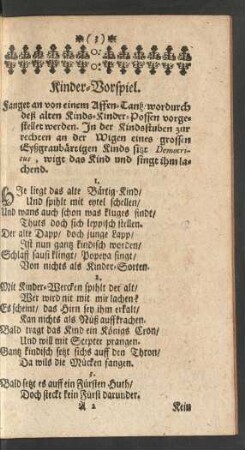 (3)
Kinder-Vorspiel.
Fanget an von einem Affen-Tantz/ wordurch
deß alten Kinds-Kinder-Possen vorge-
stellet werden. In der Kindsstuben zur
rechten an der Wigen eines grossen
Eyßgraubärtigen Kinds sitzt Democri-
tus, wigt das Kind und singt ihm la-
chend.
1.
Hie liegt das alte Bärtig-Kind/
Und spihlt mit eytel schellen/
Und wans auch schon was kluges findt/
Thuts doch sich leppisch stellen.
Der alte Dapp/ doch junge Lapp/
Ist nun gantz kindisch worden/
Schlaff sausi klingt/ Popeya singt/
Von nichts als Kinder-Sorten.
2.
Mit Kinder-Wercken spihlt der alt/
Wer wird nit mit mir lachen?
Es scheint/ das Hirn sey ihm erkalt/
Kan nichts als Nüß auffkrachen.
Bald tragt das Kind ein Königs Cron/
Und will mit Scepter prangen.
Gantz kindisch setzt sichs auff den Thron/
Da wils die Mücken fangen.
3.
Bald setzt es auff ein Fürsten Huth/
Doch steckt kein Fürst darunder.
A 2 Kein